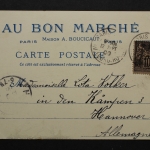 AU BON MARCHÉ
PARIS MAISON A. BOUCICAUT PARIS
CARTE POSTALE
Ce côté est exclusivement réservé à l'adresse
Mademoiselle Lola Köhler
in den Kämpen 3
Hannover
Allemagne